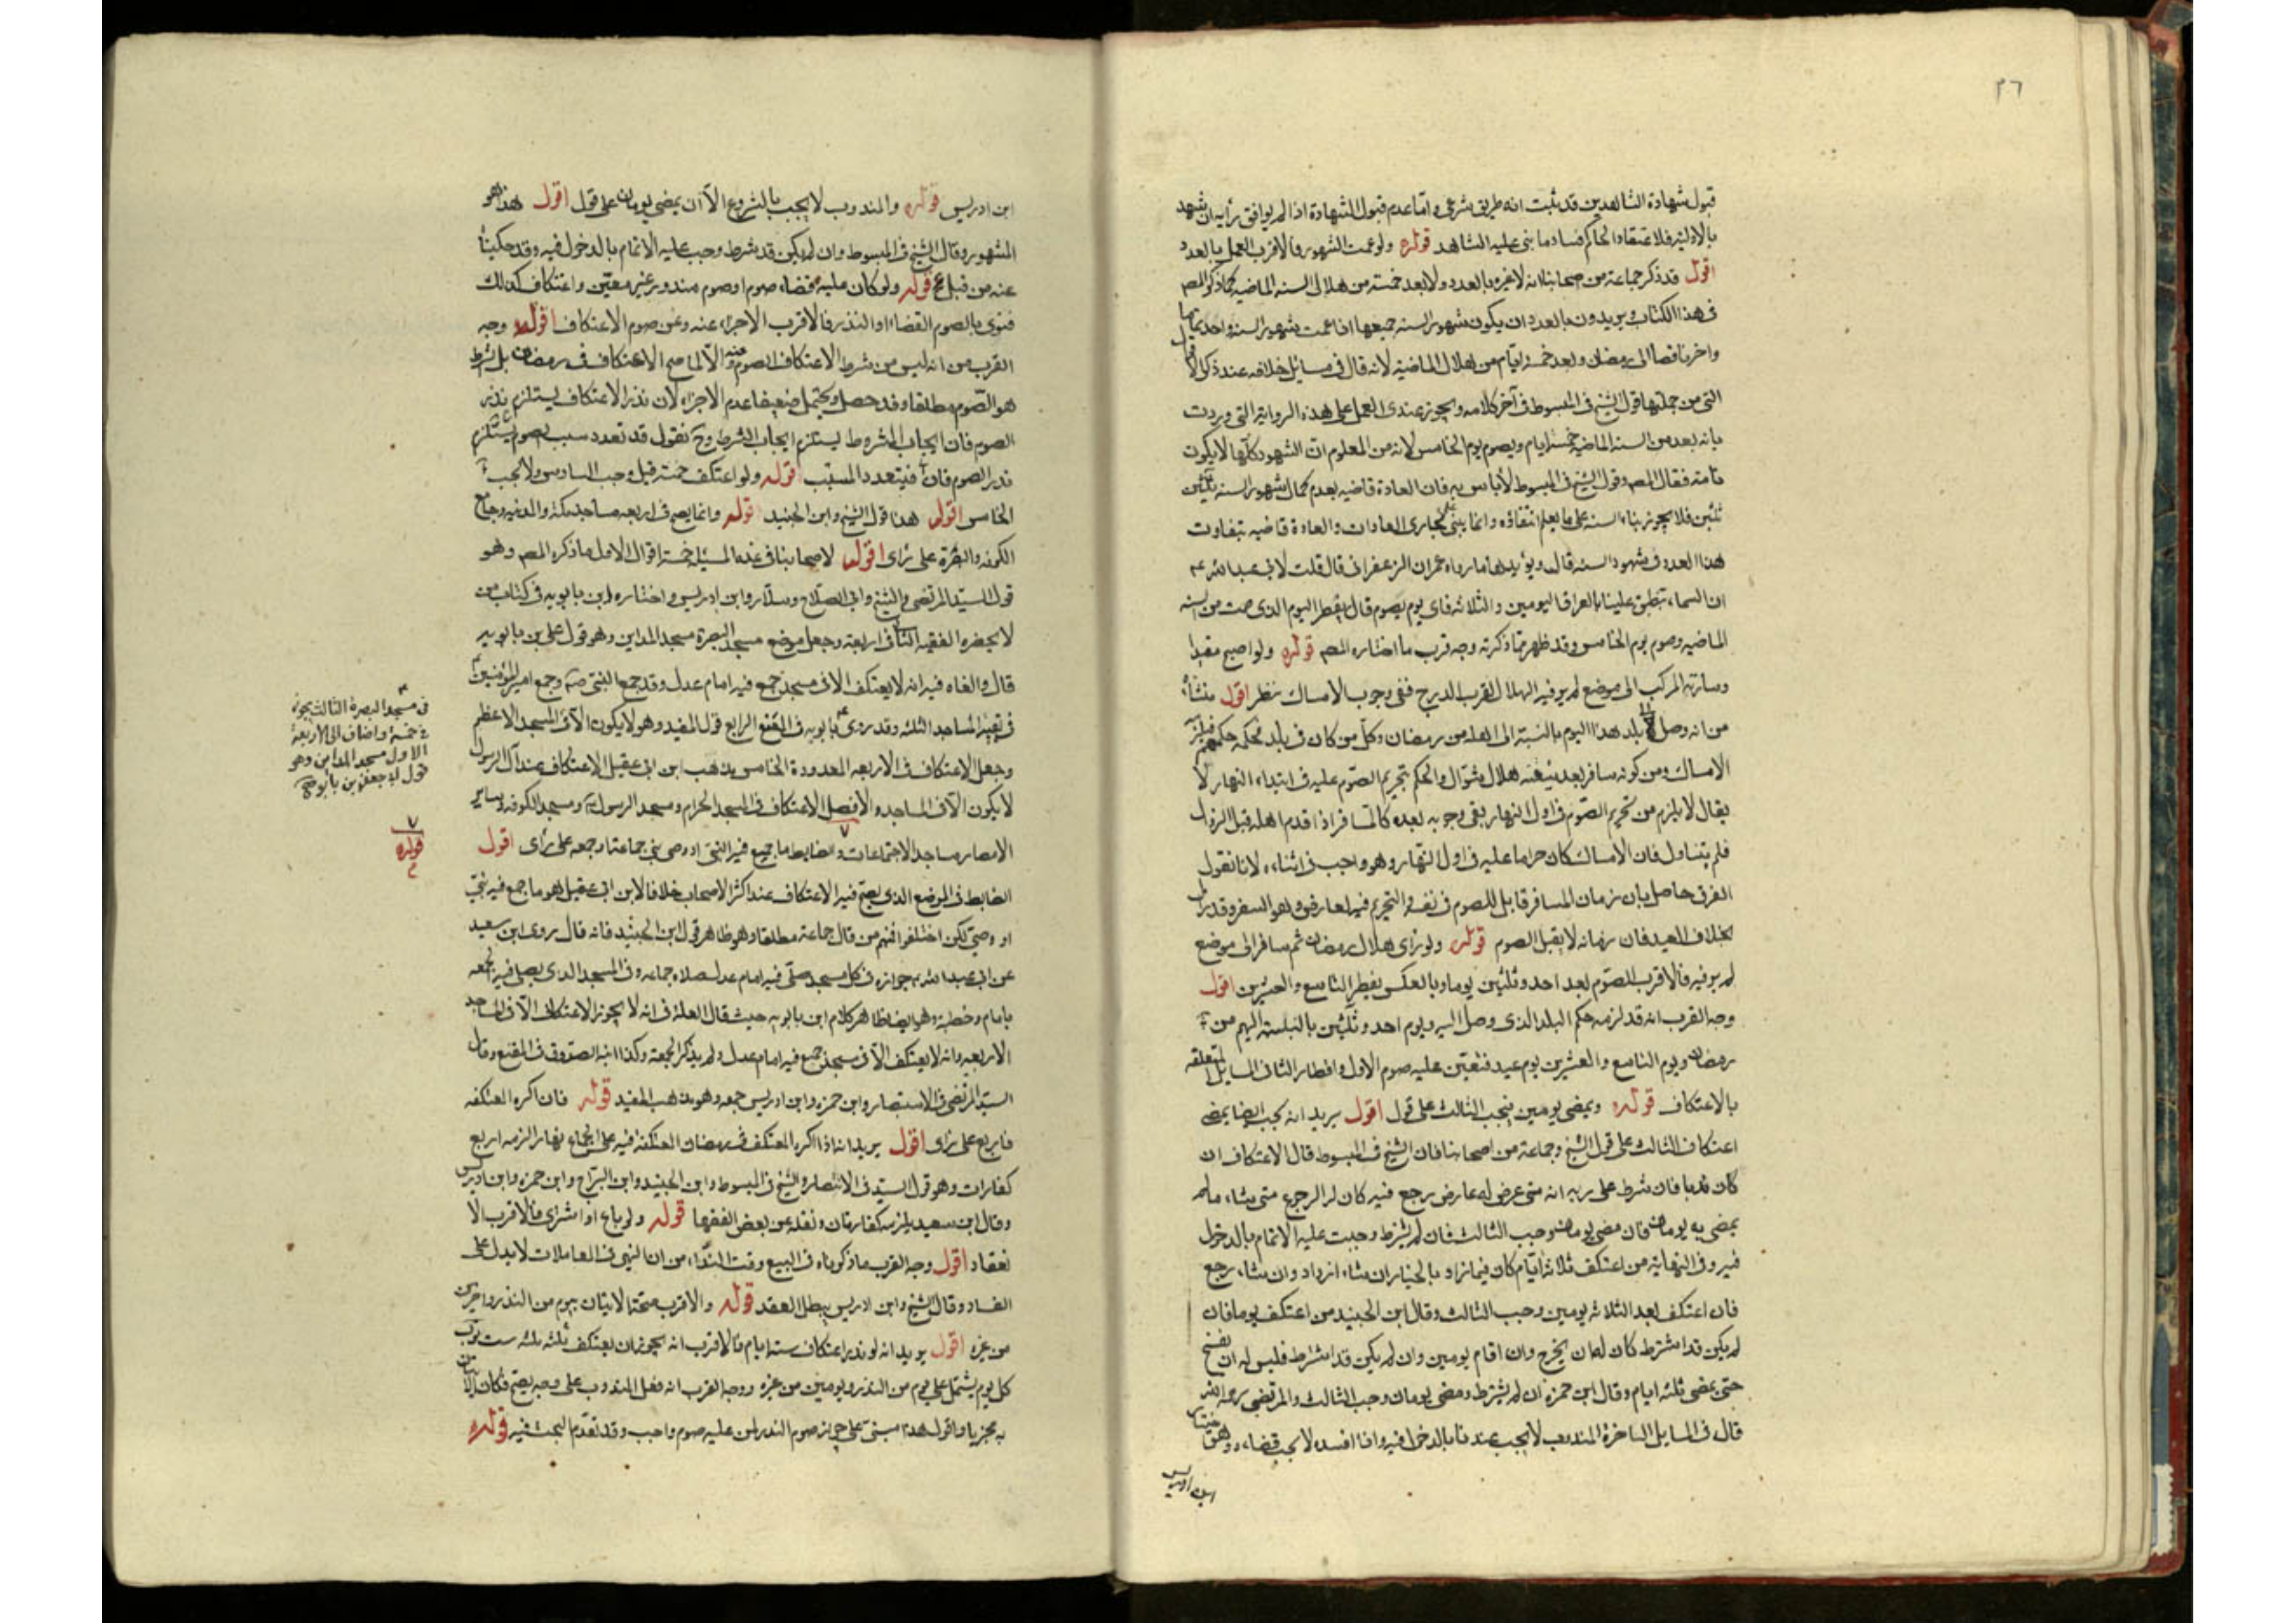 ٣٦
قبول شهادة الشاهدين قد ثبت انه طريق شرعى واما عدم قبول الشهادة اذا لم يوافق رأيه ان شهد
بالاولية فلاعتقاد الحاكم فساد ما بنى عليه الشاهد قوله ولو غمت الشهور فالاقرب العمل بالعدد
اقول قد ذكر جماعة من اصحابنا انه لا عبرة بالعدد ولا بعد خمسة من هلال السنه الماضيه كما ذكر المصم
فى هذا الكتاب ويريدون بالعدد ان يكون شهور السنه جميعها اذا غمت شهور السنه واحد تماما
واخر ناقصا الى رمضان وبعد خمسة ايام من هلال الماضية لانه قال فى مسايل خلافه عند ذكر الاقوال
التى من جملتها قول الشيخ فى المبسوط فى آخر كلامه ويجوز عندى العمل على هذه الرواية التى وردت
بانه يعد من السنه الماضيه خمسة ايام ويصوم يوم الخامس لانه من المعلوم ان الشهود كلها لا يكون
تامة فقال المصم وقول الشيخ فى المبسوط لا بأس به فان العادة قاضيه بعدم كمال شهور السنه ثلثين
ثلثين فلا يجوز بناء السنه على ما يعلم انتفاؤه وانما يبنى على مجارى العادات والعادة قاضيه بتفاوت
هذا العدد فى شهود السنه قال ويؤيده ما رواه عمران الزعفرانى قال قلت لابى عبد الله عم
ان السماء تطبق علينا بالعراق اليومين والثلاثه فاى يوم يصوم قال افطر اليوم الذى صمت من السنه
الماضيه وصوم يوم الخامس وقد ظهر مما ذكرته وجه قرب ما اختاره المصم قوله ولو اصبح مفيدا
وسارت به المركب الى موضع لم ير فيه الهلال لقرب الدرج ففى وجوب الامساك نظر اقول منشأه
من انه وصل الى بلد هذا اليوم بالنسبة الى اهله من رمضان وكل من كان فى بلد فحكمه حكمهم فيلزمه
الامساك ومن كونه سافر بعد تيقنه هلال شوال والحكم بتحريم الصوم عليه فى ابتداء النهار لا
يقال لا يلزم من تحريم الصوم فى اول النهار بقى وجوبه بعده كالمسافر اذا قدم اهله قبل الزوال
فلم يتناول فان الامساك كان حراما عليه فى اول النهار وهو واجب فى اثناءه لانا نقول
الفرق حاصل بان زمان المسافر قابل للصوم فى نفسه والتحريم فيه لعارض وهو السفر وقد زال
بخلاف العيد فان زمانه لا يقبل الصوم قوله ولو رأى هلال رمضان ثم سافر الى موضع
لم ير فيه فالاقرب الصوم بعد احد وثلثين يوما وبالعكس يفطر التاسع والعشرين اقول
وجه القرب انه قد لزمه حكم البلد الذى وصل اليه ويوم احد وثلثين بالنسبته اليهم من
رمضان ويوم التاسع والعشرين يوم عيد فتعين عليه صوم الاول وافطار الثانى المسايل المتعلقه
بالاعتكاف قوله وبمضى يومين فيجب الثالث على قول اقول يريد انه يجب ايضا بمضى
اعتكاف الثالث على قول الشيخ وجماعة من اصحابنا فان الشيخ فى المبسوط قال الاعتكاف ان
كان ندبا فان شرط على ربه انه متى عرض له عارض رجع فيه كان له الرجوع متى شاء ما لم
يمضى به يومان فان مضى يومان وجب الثالث فان لم يشترط وجبت عليه الاتمام بالدخول
فيه وفى النهاية من اعتكف ثلاثة ايام كان فيما زاد بالخيار ان شاء ازداد وان شاء رجع
فان اعتكف بعد الثلاثه يومين وجب الثالث وقال ابن الجنيد من اعتكف يوما فان
لم يكن قد اشترط كان له ان يخرج وان اقام يومين وان لم يكن قد اشترط فليس له ان يفسخ
حتى يمضى ثلثه ايام وقال ابن حمزه ان لم يشترط ومضى يومان وجب الثالث والمرتضى رحمه الله
قال فى المسايل الناصرية المندوب لا يجب عندنا بالدخول فيه واذا افسده لا يجب قضاءه وهو اختيار
ابن ادريس
ابن ادريس قوله والمندوب لا يجب بالشروع الا ان يمضى يومان على قول اقول هذا هو
المشهور وقال الشيخ فى المبسوط وان لم يكن قد شرط وجب عليه الاتمام بالدخول فيه وقد حكينا
عنه من قبل قوله ولو كان عليه قضاء صوم او صوم مندور غير معين واعتكاف كذلك
فنوى بالصوم القضاء او النذر فالاقرب الاجزاء عنه وعن صوم الاعتكاف اقول وجه
القرب من انه ليس من شرط الاعتكاف الصوم عنه والا لما صح الاعتكاف فى رمضان بل الشرط
هو الصوم مطلقا وقد حصل ويحتمل ضعيفا عدم الاجزاء لان نذر الاعتكاف يستلزم نذر
الصوم فان ايجاب المشروط يستلزم ايجاب الشرط وح نقول قد تعدد سبب الصوم يستلزم
فيتعدد المسبب قوله ولو اعتكف خمسة قيل وجب السادس ولا يجب
الخامس اقول هذا قول الشيخ وابن الجنيد قوله وانما يصح فى اربعه مساجد مكه والمدنيه وجامع
الكوفه والبصرة على رأى اقول لاصحابنا فى هذه المسيله خمسة اقوال الاول ما ذكره المصم وهو
قول السيد المرتضى والشيخ وابى الصلاح وسلار وابن ادريس واختاره ابن بابويه فى كتاب من
لا يحضره الفقيه الثانى اربعة وجعل موضع مسجد البصرة مسجد المداين وهو قول على بن بابويه
قال والعله فيه انه لا يعتكف الا فى مسجد جمع فيه امام عدل وقد جمع النبى صم وجمع امير المؤمنين
فى بقية المساجد الثلثه وقد روى بابويه فى المقنع الرابع قول المفيد وهو لا يكون الا فى المسجد الاعظم
وجعل الاعتكاف فى الاربعه المعدودة الخامس مذهب ابن ابى عقيل الاعتكاف عند آل الرسول
لا يكون الا فى المساجد والافضل الاعتكاف فى المسجد الحرام ومسجد الرسول ومسجد الكوفه وساير
الامصار مساجد الاجتماعات والضابط ما جمع فيه النبى او وصى نبى جماعة او جمعه على رأى اقول
الضابط فى الموضع الذى يصح فيه الاعتكاف عند اكثر الاصحاب خلافا لابن ابى عقيل هو ما جمع فيه نبى
او وصى لكن اختلفوا فمنهم من قال جماعة مطلقا وهو ظاهر قول ابن الجنيد فانه قال روى ابن سعيد
عن ابى عبد الله جوازه فى كل مسجد صلى فيه امام عدل صلاه جماعه وفى المسجد الذى يصلى فيه الجمعه
بامام وخطبة وهو ايضا ظاهر كلام ابن بابويه حيث قال العلة فى انه لا يجوز الاعتكاف الا فى المساجد
الاربعه وانه لا يعتكف الا فى مسجد جمع فيه امام عدل ولم يذكر الجمعة وكذا ابنه الصدوق فى المقنع وقال
السيد المرتضى فى الانتصار وابن حمزه وابن ادريس جمعه وهو مذهب المفيد قوله فان اكره المعتكفه
فاربع على رأى اقول يريد انه اذا اكره المعتكف فى رمضان المعتكفة فيه على الجماع نهارا لزمه اربع
كفارات وهو قول السيد فى الانتصار والشيخ فى المبسوط وابن الجنيد وابن البراج وابن حمزه وابن ادريس
وقال ابن سعيد يلزمه كفارتان ونقله عن بعض الفقها قوله ولو باع او اشترى فالاقرب الا
نعقاد اقول وجه القرب ما ذكرناه فى البيع وقت النداء من ان النهى فى المعاملات لا يدل على
الفساد وقال الشيخ وابن ادريس يبطل العقد قوله والاقرب صحة الاتيان بيوم من النذر واخرين
من غيره اقول يريد انه لو نذر اعتكاف ستة ايام فالاقرب انه يجوز ان يعتكف ثلثه ثلثه ست
كل يوم يشتمل على يوم من النذر ويومين من غيره ووجه القرب انه فعل المندوب على وجه يصح فكان الاتيان
به مجزيا واقول هذا مبنى على جواز صوم الندر لمن عليه صوم واجب وقد تقدم البحث فيه قوله
فى مسجد البصرة الثالث يجوز
فى خمسة واضاف الى الاربعة
الاول مسجد المداين وهو
قول ابى جعفر بن بابويه
قوله